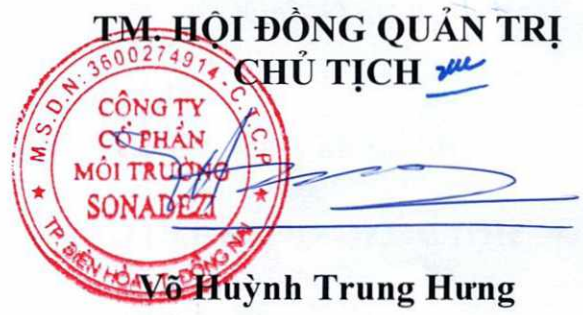 TM. HỘI ĐỒNG QUẢN TRỊ
CHỦ TỊCH
M.S.D.N: 3600274914 - C.T.C.P
CÔNG TY
CỔ PHẦN
MÔI TRƯỜNG
SONADEZI
TP. BIÊN HÒA - T. ĐỒNG NAI
Võ Huỳnh Trung Hưng